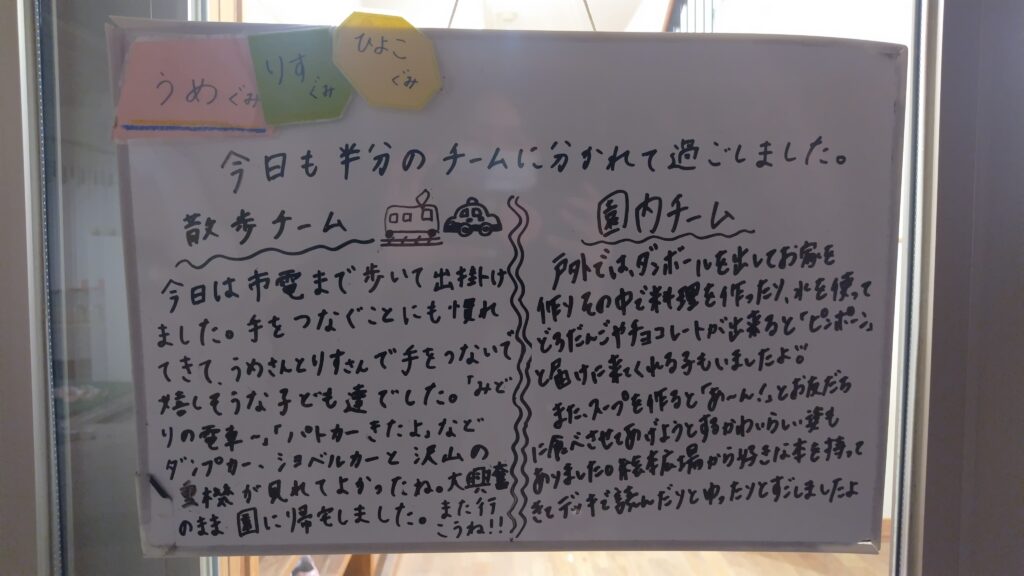 うめぐみ
りすぐみ
ひよこぐみ
今日も半分のチームに分かれて過ごしました。
散歩チーム
今日は市電まで歩いて出掛け
ました。手をつなぐことにも慣れ
てきて、うめさんとりすさんで手をつないで
嬉しそうな子ども達でした。「みど
りの電車ー」「パトカーきたよ」など
ダンプカー、ショベルカーと沢山の
重機が見れてよかったね。大興奮
のまま園に帰宅しました。また行
こうね!!
園内チーム
戸外では、ダンボールを出してお家を
作りその中で料理を作ったり、水を使って
どろだんごやチョコレートが出来ると「ピンポーン」
と届けに来てくれる子もいましたよ。
また、スープを作ると「あーん!」とお友だち
に食べさせてあげようとするかわいらしい姿も
ありました。絵本広場から好きな本を持って
きてデッキで読んだりとゆったりとすごしましたよ